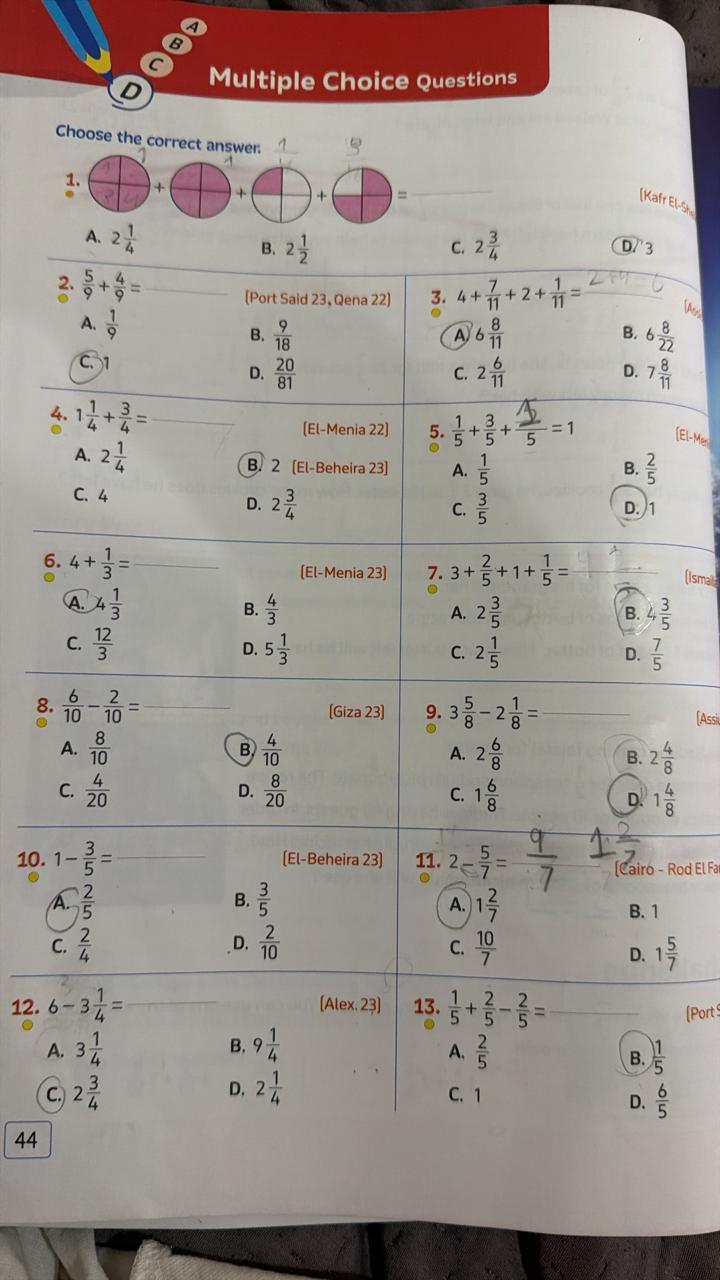 A
B
C
D
Multiple Choice Questions
Choose the correct answer.
1. + + + = ______ (Kafr El-She
A. 2 1/4 B. 2 1/2 C. 2 3/4 D. 3
2. 5/9 + 4/9 = ______ (Port Said 23, Qena 22)
A. 1/9 B. 9/18
C. 1 D. 20/81
3. 4 + 7/11 + 2 + 1/11 = 2+4=6
A. 6 8/11 B. 6 8/22
C. 2 6/11 D. 7 8/11
4. 1 1/4 + 3/4 = ______ (El-Menia 22)
A. 2 1/4 B. 2 (El-Beheira 23)
C. 4 D. 2 3/4
5. 1/5 + 3/5 + ___/5 = 1 (El-Men
A. 1/5 B. 2/5
C. 3/5 D. 1
6. 4 + 1/3 = ______ (El-Menia 23)
A. 4 1/3 B. 4/3
C. 12/3 D. 5 1/3
7. 3 + 2/5 + 1 + 1/5 = ______ (Ismail
A. 2 3/5 B. 4 3/5
C. 2 1/5 D. 7/5
8. 6/10 − 2/10 = ______ (Giza 23)
A. 8/10 B. 4/10
C. 4/20 D. 8/20
9. 3 5/8 − 2 1/8 = ______ (Assiu
A. 2 6/8 B. 2 4/8
C. 1 6/8 D. 1 4/8
10. 1 − 3/5 = ______ (El-Beheira 23)
A. 2/5 B. 3/5
C. 2/4 D. 2/10
11. 2 − 5/7 = 9/7 1 2/7 (Cairo - Rod El Fa
A. 1 2/7 B. 1
C. 10/7 D. 1 5/7
12. 6 − 3 1/4 = ______ (Alex. 23)
A. 3 1/4 B. 9 1/4
C. 2 3/4 D. 2 1/4
13. 1/5 + 2/5 − 2/5 = ______ (Port S
A. 2/5 B. 1/5
C. 1 D. 6/5
44